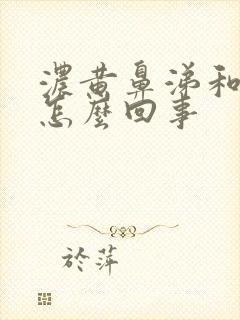 濃黄鼻涕和
怎麼回事
於萍